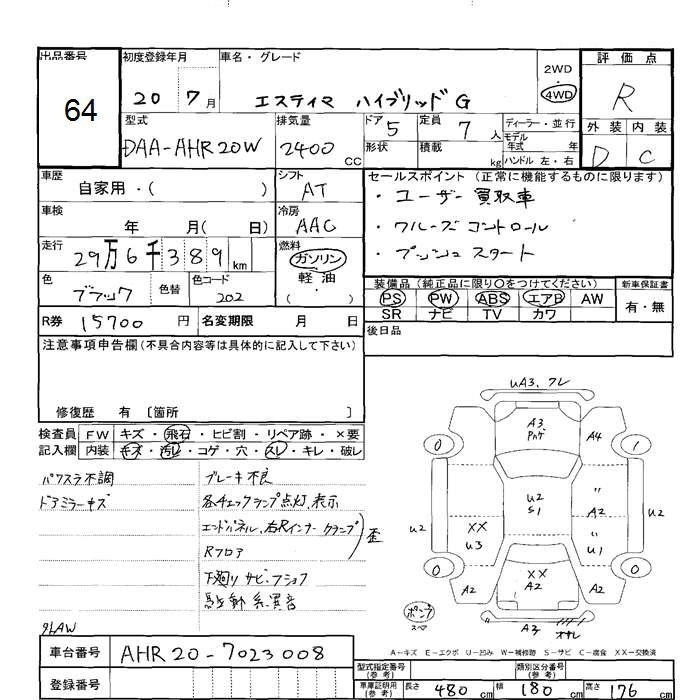 出品番号 初度登録年月 車名・グレード 2WD 評価点
64 20 7月 エスティマ ハイブリッド G ・ 4WD R
型式 排気量 ドア 5 定員 7人 ディーラー・並行 外装 内装
DAA-AHR20W 2400 CC 形状 積載 kg モデル年式 年 D C
ハンドル 左・右
車歴 シフト セールスポイント (正常に機能するものに限ります)
自家用・( ) AT ・ユーザー買取車
車検 冷房 ・クルーズコントロール
年 月( 日) AAC ・プッシュスタート
走行 燃料
29万6千389km ガソリン・軽油・( )
色 色替 色コード 装備品 (純正品に限り○をつけてください) 新車保証書
ブラック 202 PS PW ABS エアB AW 有・無
SR ナビ TV カワ
R券 15700 円 名変期限 月 日 後日品
注意事項申告欄(不具合内容等は具体的に記入して下さい)
修復歴 有 〔箇所 〕
検査員 FW キズ・飛石・ヒビ割・リペア跡・×要
記入欄 内装 キズ・汚レ・コゲ・穴・スレ・キレ・破レ
パワスラ不調 ブレーキ不良
ドアミラーキズ 各4チェックランプ点灯、表示
エンドパネル、右Rインナー クランプ 歪
Rフロア
下廻り サビ、フショク
駆動系異音
uA3、ワレ
A3
A4
0 1
U2
S1
〃
A2
〃
U1
XX
U3
U2 U2
XX
A2
0 0
A2 A2
パンク
スペ
A3
A-キズ E-エクボ U-凹み W-補修跡 S-サビ C-腐食 XX-交換済
車台番号 AHR20-7023008
登録番号
型式指定番号(参考) 類別区分番号(参考)
車庫証明用(参考) 長さ 480 cm 幅 180 cm 高さ 176 cm